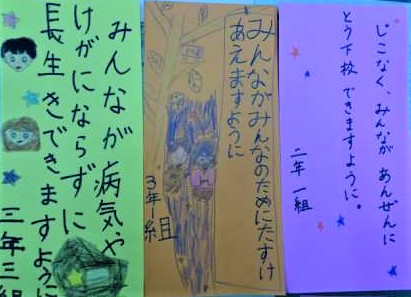 じこなく、みんなが あんぜんに
とう下校 できますように。
二年一組
みんながみんなのためにたすけ
あえますように
3年1組
みんなが病気や
けがにならずに
長生きできますように
三年三組